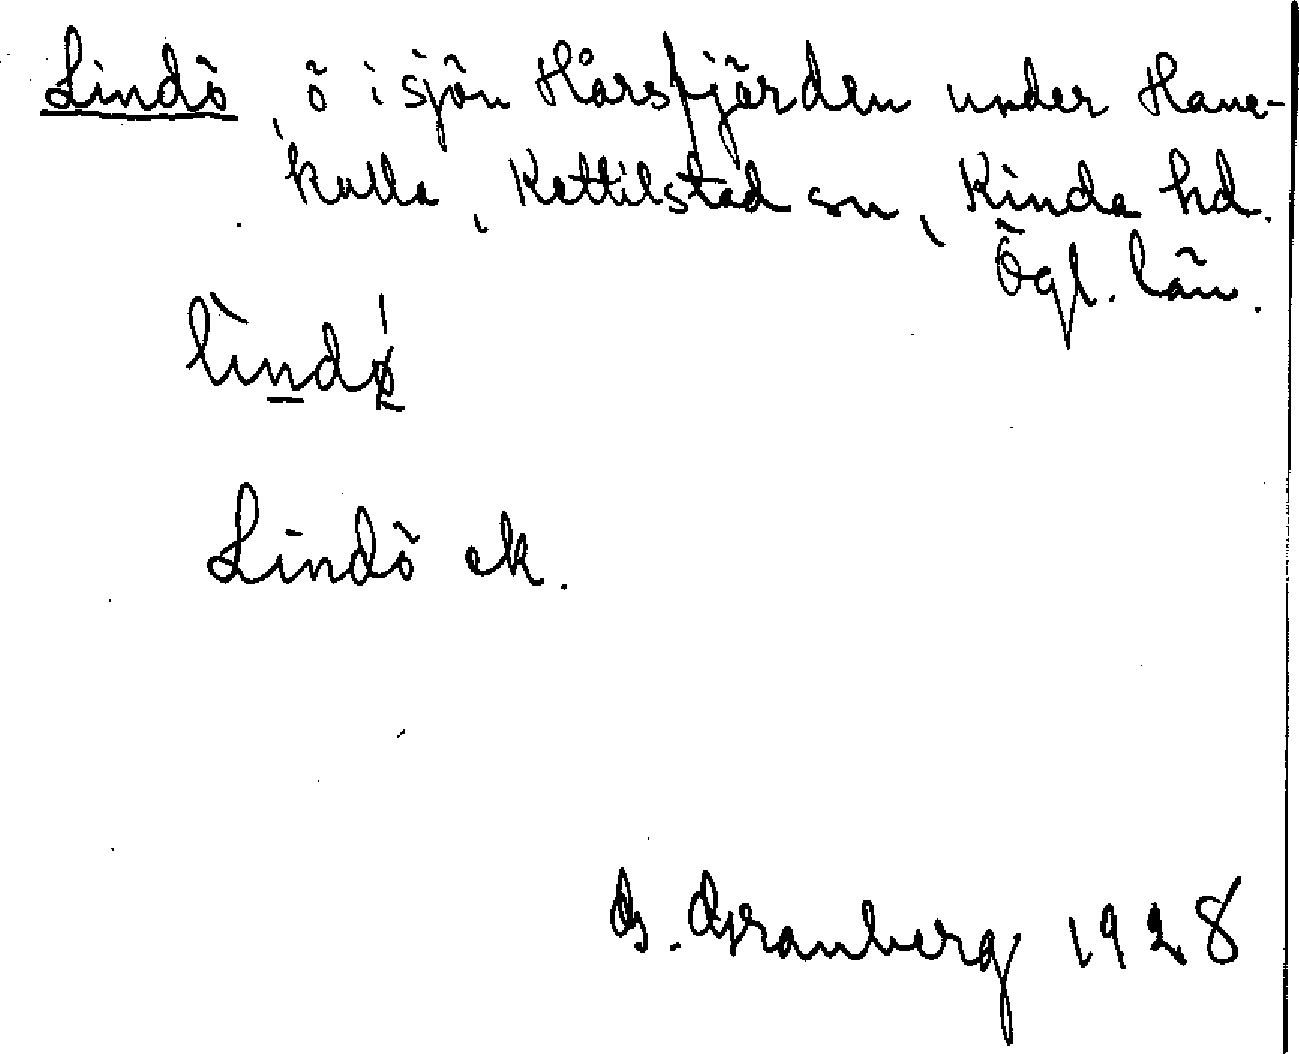 Lindö, ö i sjön Hårsfjärden under Hane-
kulla, Kettilstad sn, Kinda hd.
Ögl. län.
Lindö ek.
G. Granberg 1928